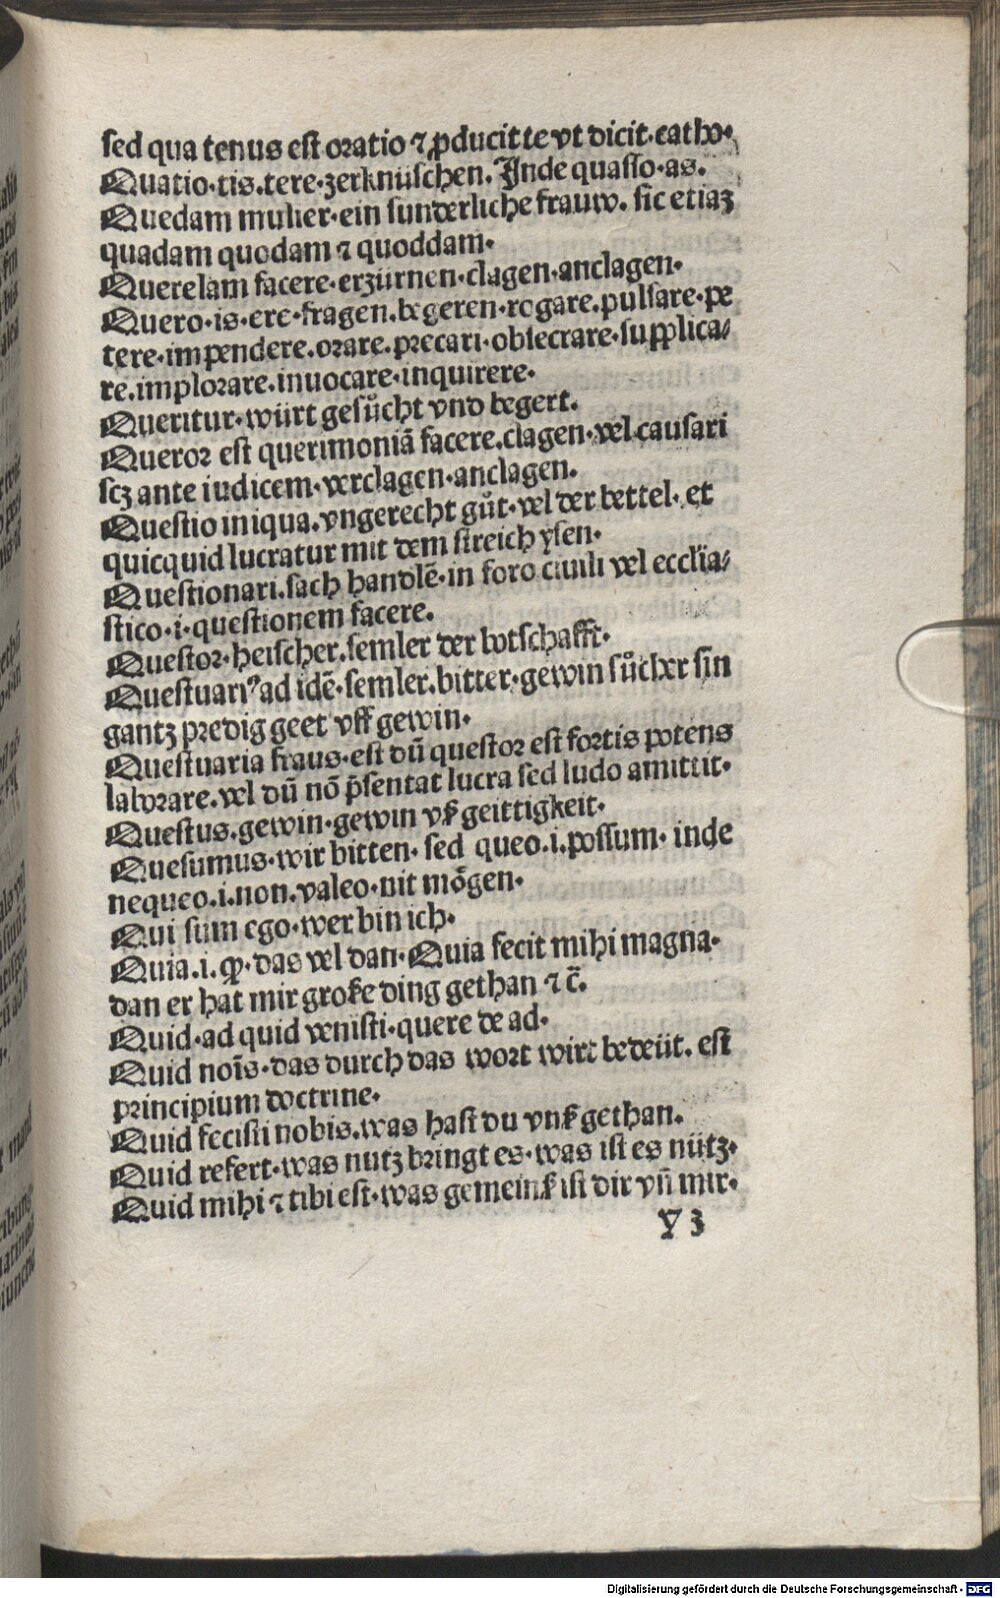 sed qua tenus est oratio ⁊ ꝓducit te vt dicit·catho·
Quatio·tis.tere·zerknüschen. Inde quasso·as.
Quedam mulier·ein sunderliche frauw. sic etiaꝫ
quadam quodam ⁊ quoddam·
Querelam facere·erzürnen·clagen·anclagen·
Quero·is·ere·fragen.begeren·rogare.pulsare·pe
tere·impendere.orare.precari·obsecrare·supplica⸗
re.implorare.inuocare·inquirere·
Queritur·würt gesůcht vnd begert.
Queror est querimoniā facere.clagen·vel causari
scꝫ ante iudicem·verclagen·anclagen.
Questio iniqua.vngerecht gůt·vel der bettel·et
quicquid lucratur mit dem streich ysen·
Questionari.sach handlē·in foro ciuili vel ecclīa⸗
stico·i·questionem facere.
Questor·heischer.semler der botschafft·
Questuariꝰ ad idē·semler.bitter·gewin sůcher sin
gantz predig geet vff gewin·
Questuaria fraus·est dū questor est fortis potens
laborare.vel dū nō p̄sentat lucra sed ludo amittit·
Questus.gewin·gewin vß geittigkeit·
Quesumus·wir bitten· sed queo.i.possum· inde
nequeo.i.non.valeo·nit mögen·
Qui sum ego·wer bin ich·
Quia.i.ꝙ·das vel dan·Quia fecit mihi magna·
dan er hat mir große ding gethan ⁊ c̄.
Quid·ad quid venisti·quere de ad·
Quid noīs·das durch das wort wirt bedeüt. est
principium doctrine·
Quid fecisti nobis.was hast du vnß gethan.
Quid refert·was nutz bringt es·was ist es nütz·
Quid mihi ⁊ tibi est·was gemeinß ist dir vñ mir·
y 3
Digitalisierung gefördert durch die Deutsche Forschungsgemeinschaft - DFG